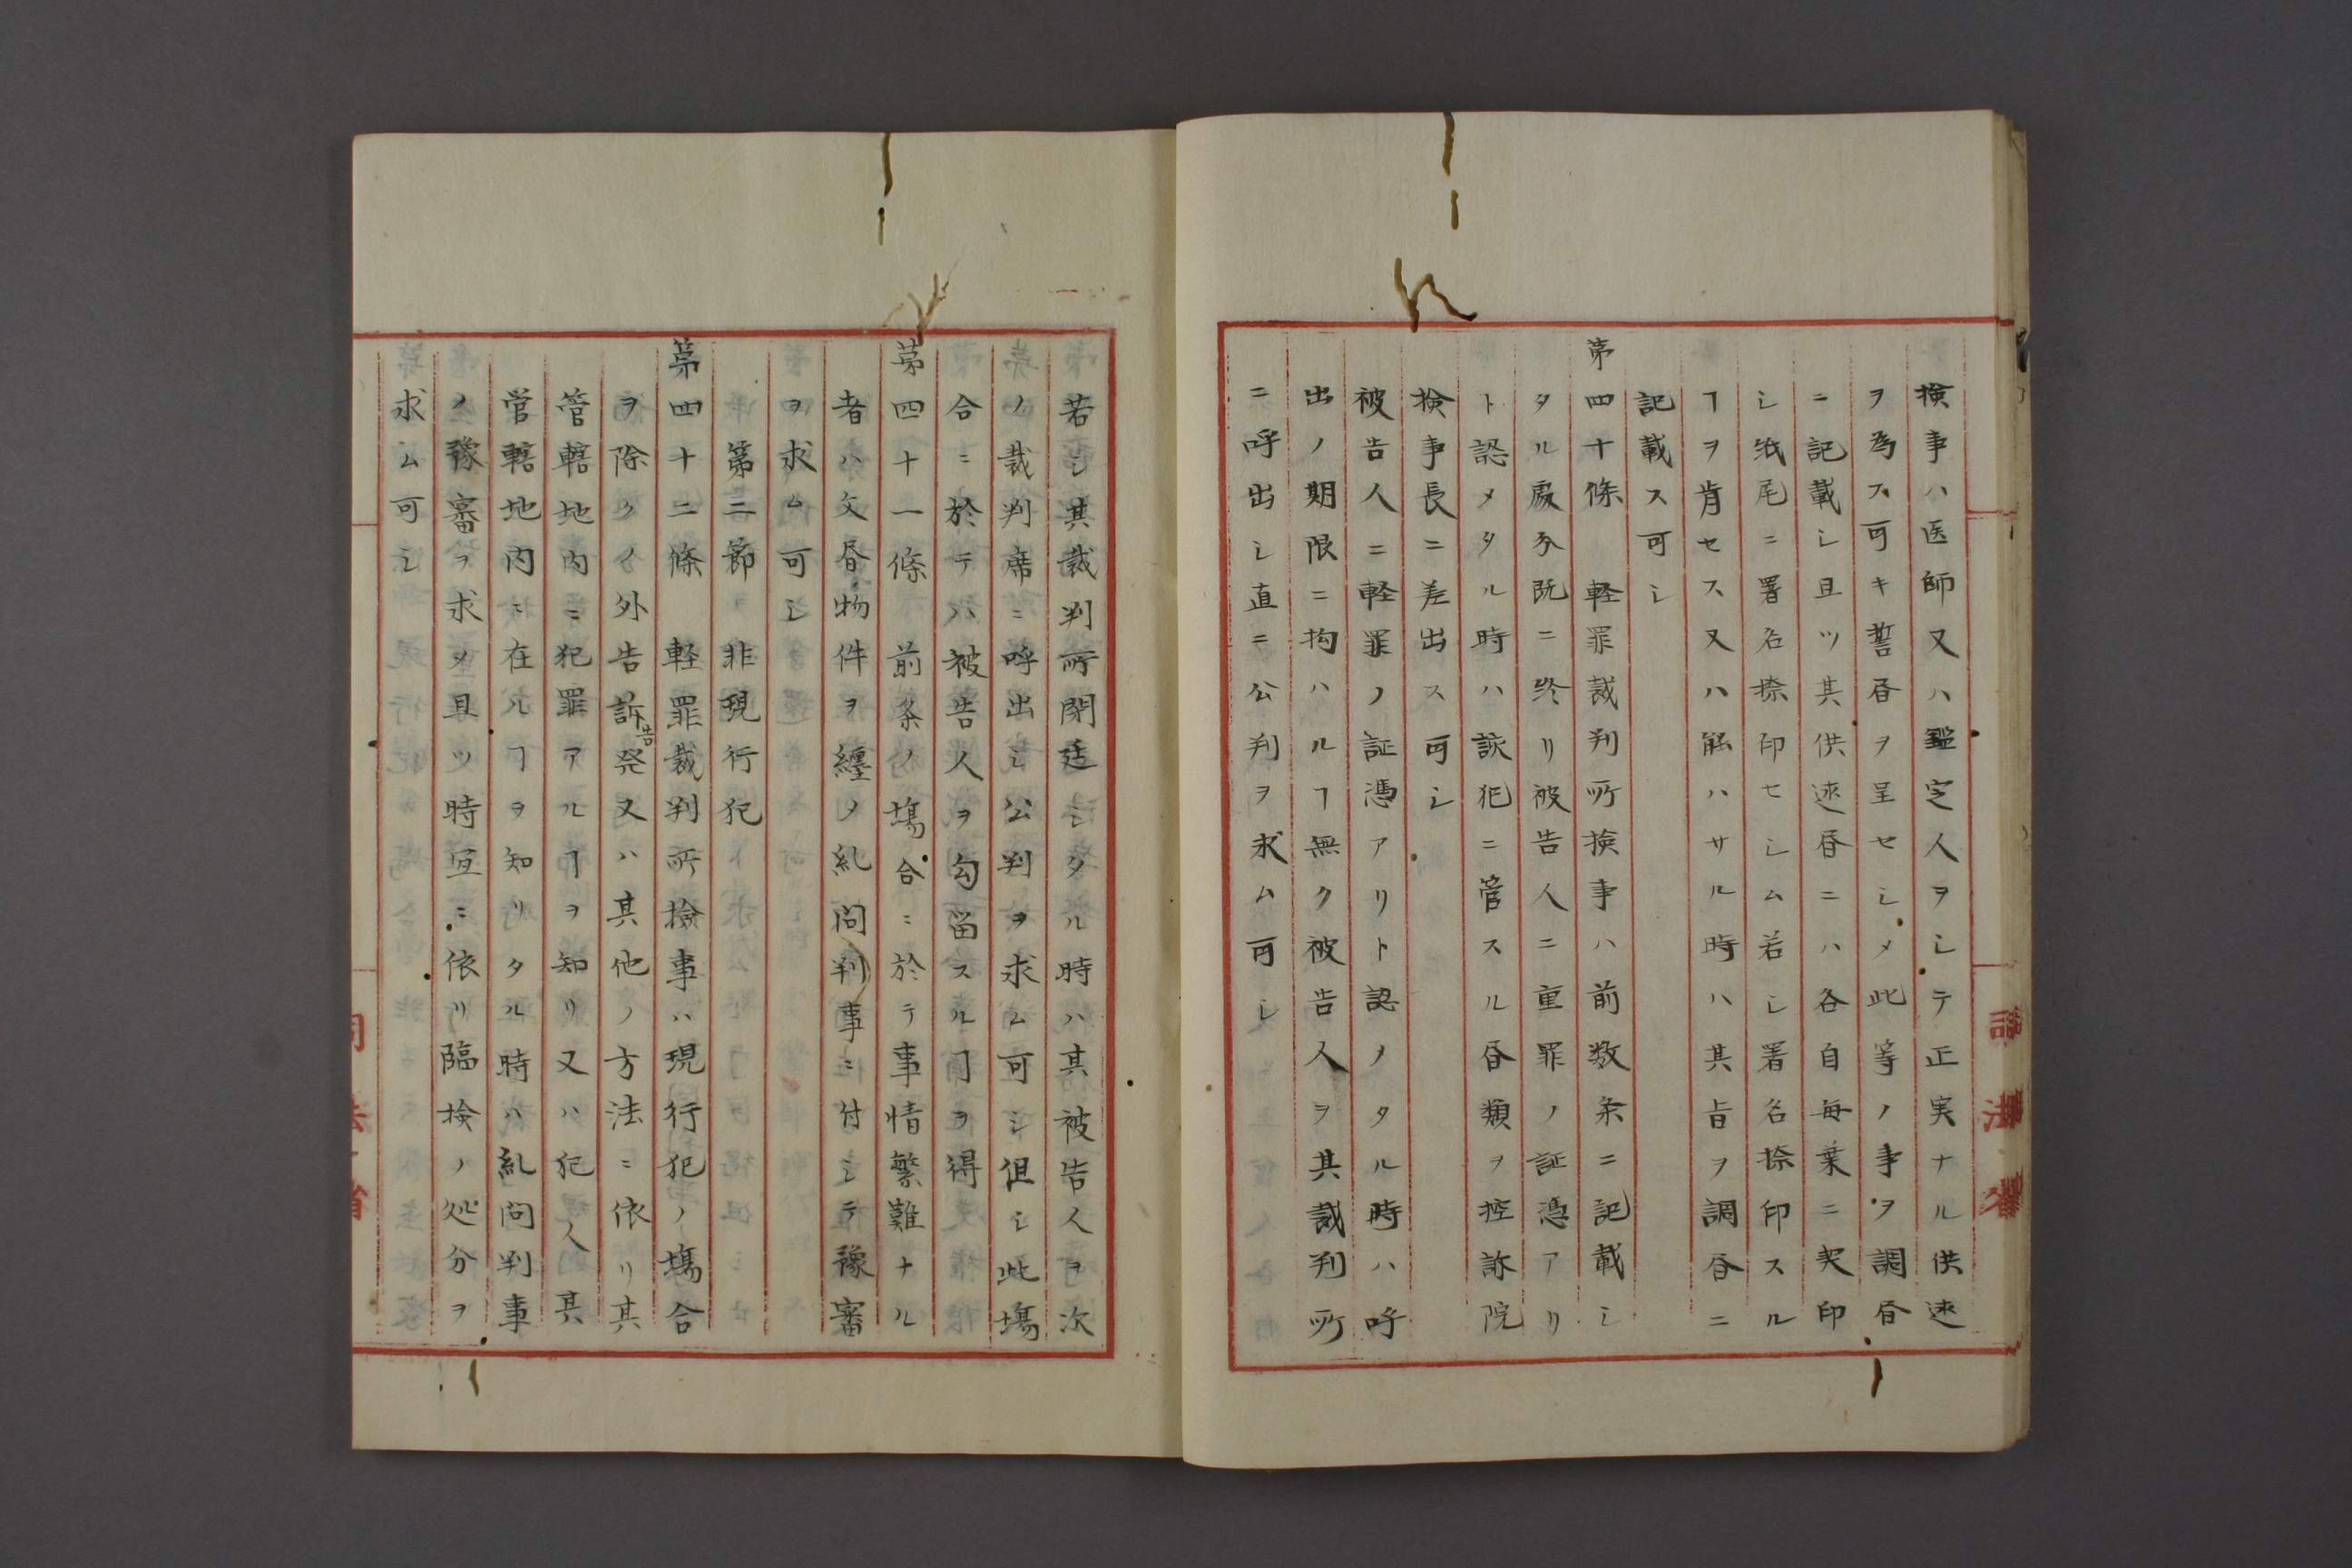 検事ハ医師又ハ鑑定人ヲシテ正実ナル供述
ヲ為ス可キ誓書ヲ呈セシメ此等ノ事ヲ調書
ニ記載シ且ツ其供述書ニハ各自毎葉ニ契印
シ紙尾ニ署名捺印セシム若シ署名捺印スル
ヿヲ肯セス又ハ能ハサル時ハ其旨ヲ調書ニ
記載ス可シ
第四十條 軽罪裁判所検事ハ前数条ニ記載シ
タル處分既ニ終リ被告人ニ重罪ノ証憑アリ
ト認メタル時ハ該犯ニ管スル書類ヲ控訴院
検事長ニ差出ス可シ
被告人ニ軽罪ノ証憑アリト認メタル時ハ呼
出ノ期限ニ拘ハルヿ無ク被告人ヲ其裁判所
ニ呼出シ直ニ公判ヲ求ム可シ
若シ其裁判所閉廷シタル時ハ其被告人ヲ次
ノ裁判席ニ呼出シ公判ヲ求ム可シ但シ此塲
合ニ於テハ被告人ヲ勾留スルヿヲ得
第四十一條 前条ノ塲合ニ於テ事情繁難ナル
者ハ文書物件ヲ纏メ糺問判事ニ付シテ豫審
ヲ求ム可シ
第二節 非現行犯
第四十二條 軽罪裁判所検事ハ現行犯ノ塲合
ヲ除クノ外告訴告発又ハ其他ノ方法ニ依リ其
管轄地内ニ犯罪アルヿヲ知リ又ハ犯人其
管轄地内ニ在ルヿヲ知リタル時ハ糺問判事
ノ豫審ヲ求メ且ツ時宜ニ依リ臨検ノ処分ヲ
求ム可シ
司法省